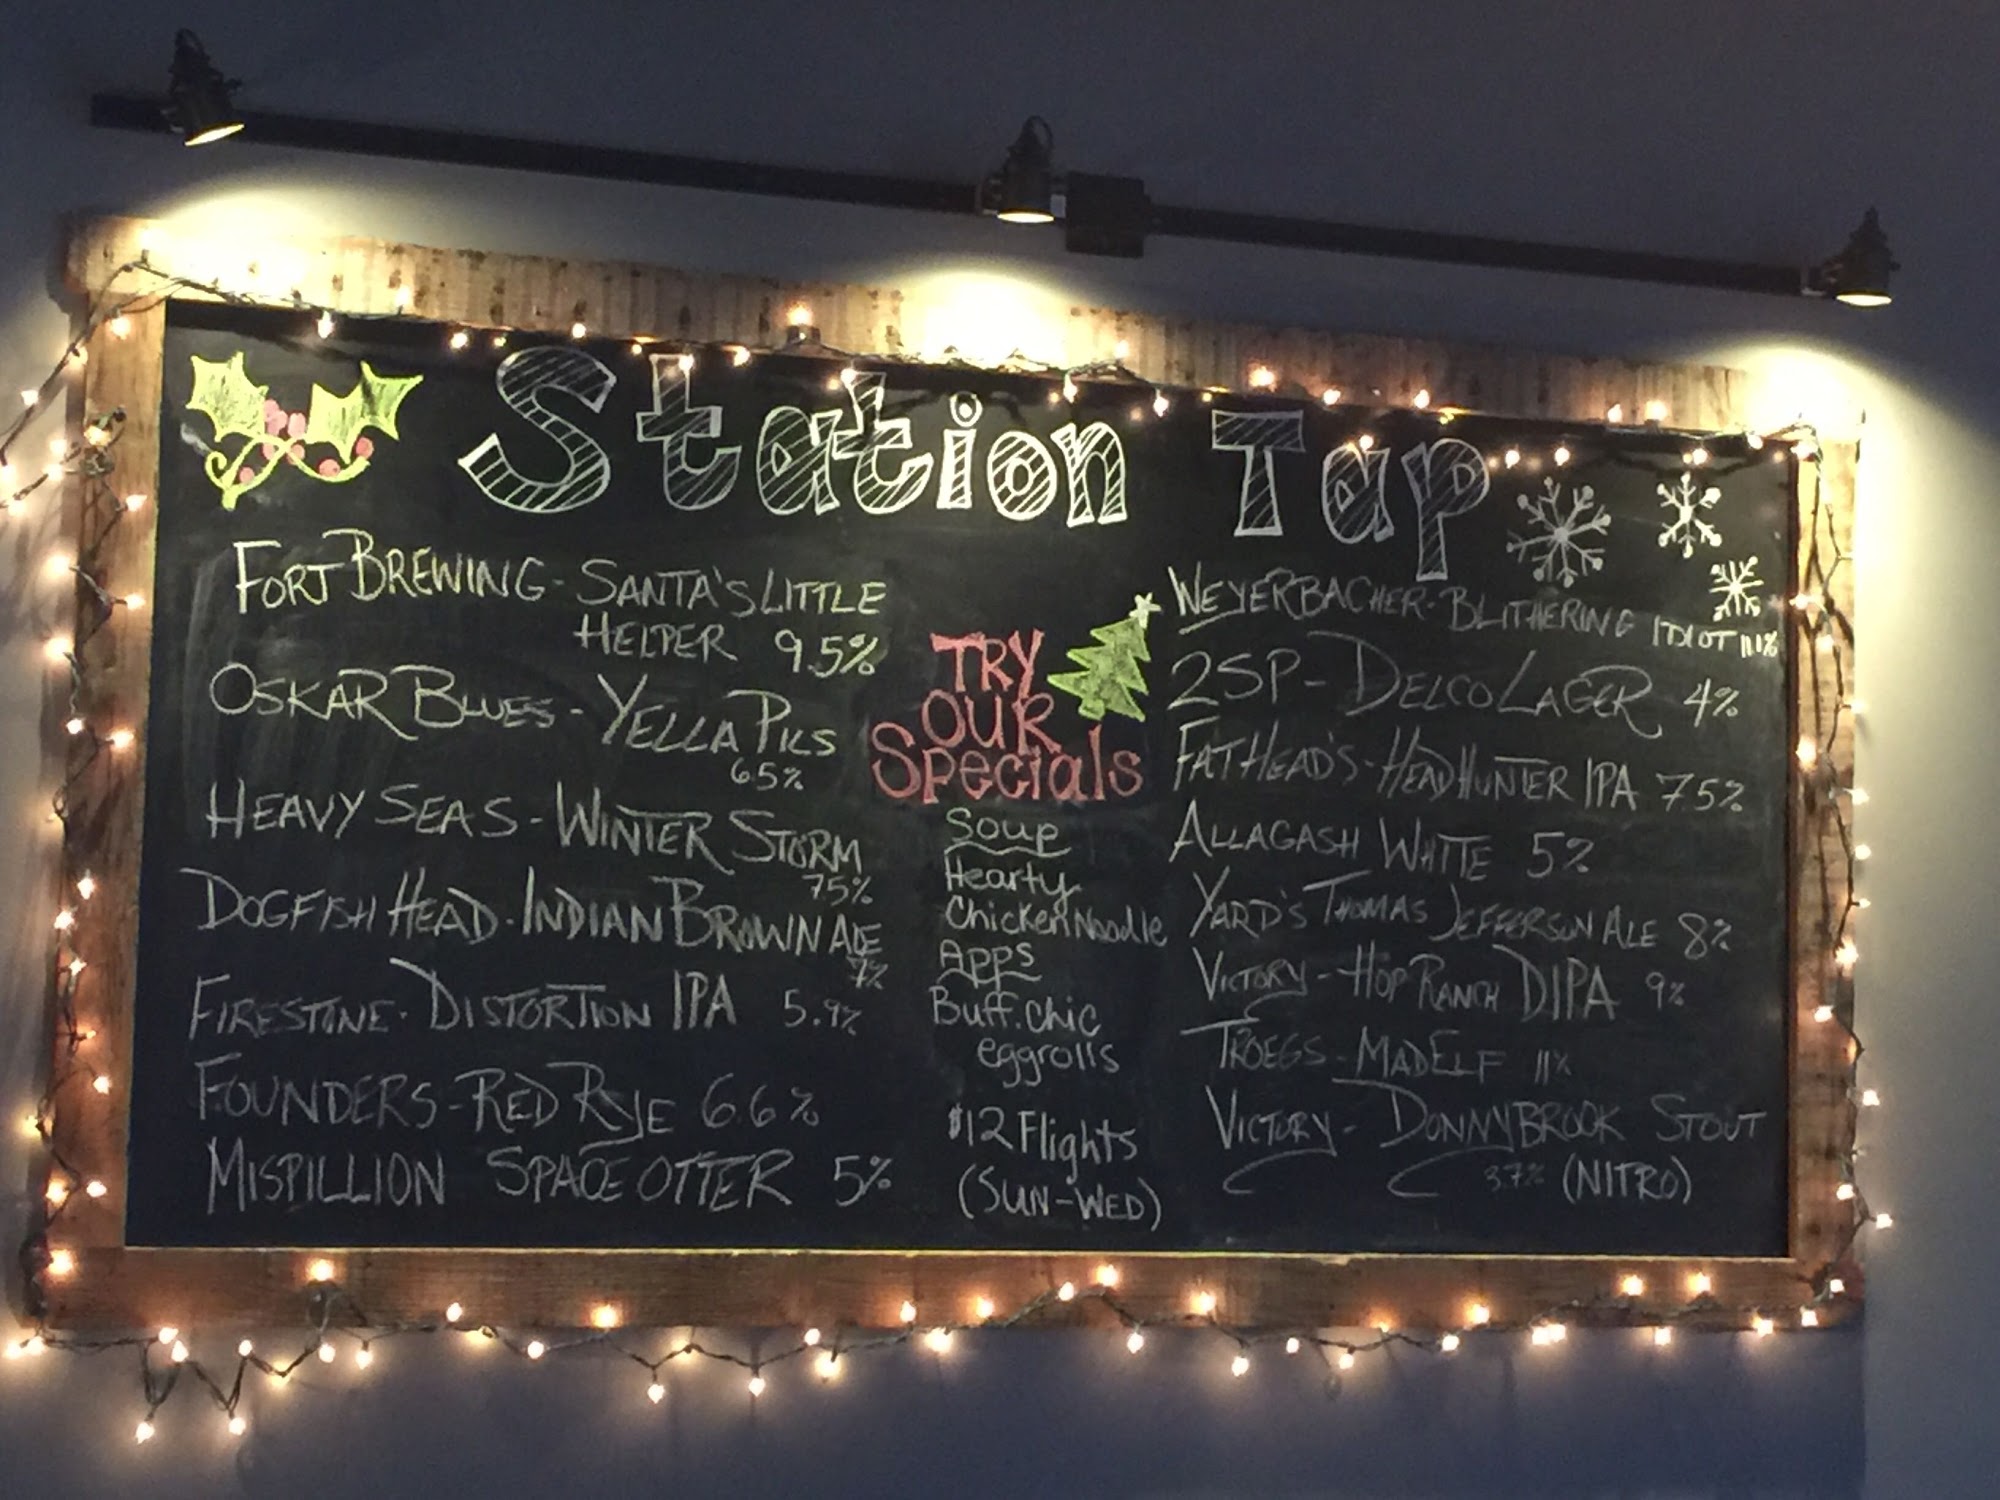 Station Tap
FORT BREWING - SANTA'S LITTLE
HELPER 9.5%
OSKAR BLUES - YELLA PILS
6.5%
HEAVY SEAS - WINTER STORM
7.5%
DOGFISH HEAD - INDIAN BROWN ALE
7%
FIRESTONE - DISTORTION IPA 5.9%
FOUNDERS - RED RYE 6.6%
MISPILLION SPACE OTTER 5%
TRY
OUR
Specials
Soup
Hearty
Chicken Noodle
Apps
Buff. chic
eggrolls
$12 Flights
(SUN-WED)
WEYERBACHER - BLITHERING IDIOT 11.1%
2SP - DELCO LAGER 4%
FATHEAD'S - HEADHUNTER IPA 7.5%
ALLAGASH WHITE 5%
YARD'S THOMAS JEFFERSON ALE 8%
VICTORY - HOP RANCH DIPA 9%
TROEGS - MAD ELF 11%
VICTORY - DONNYBROOK STOUT
3.7% (NITRO)